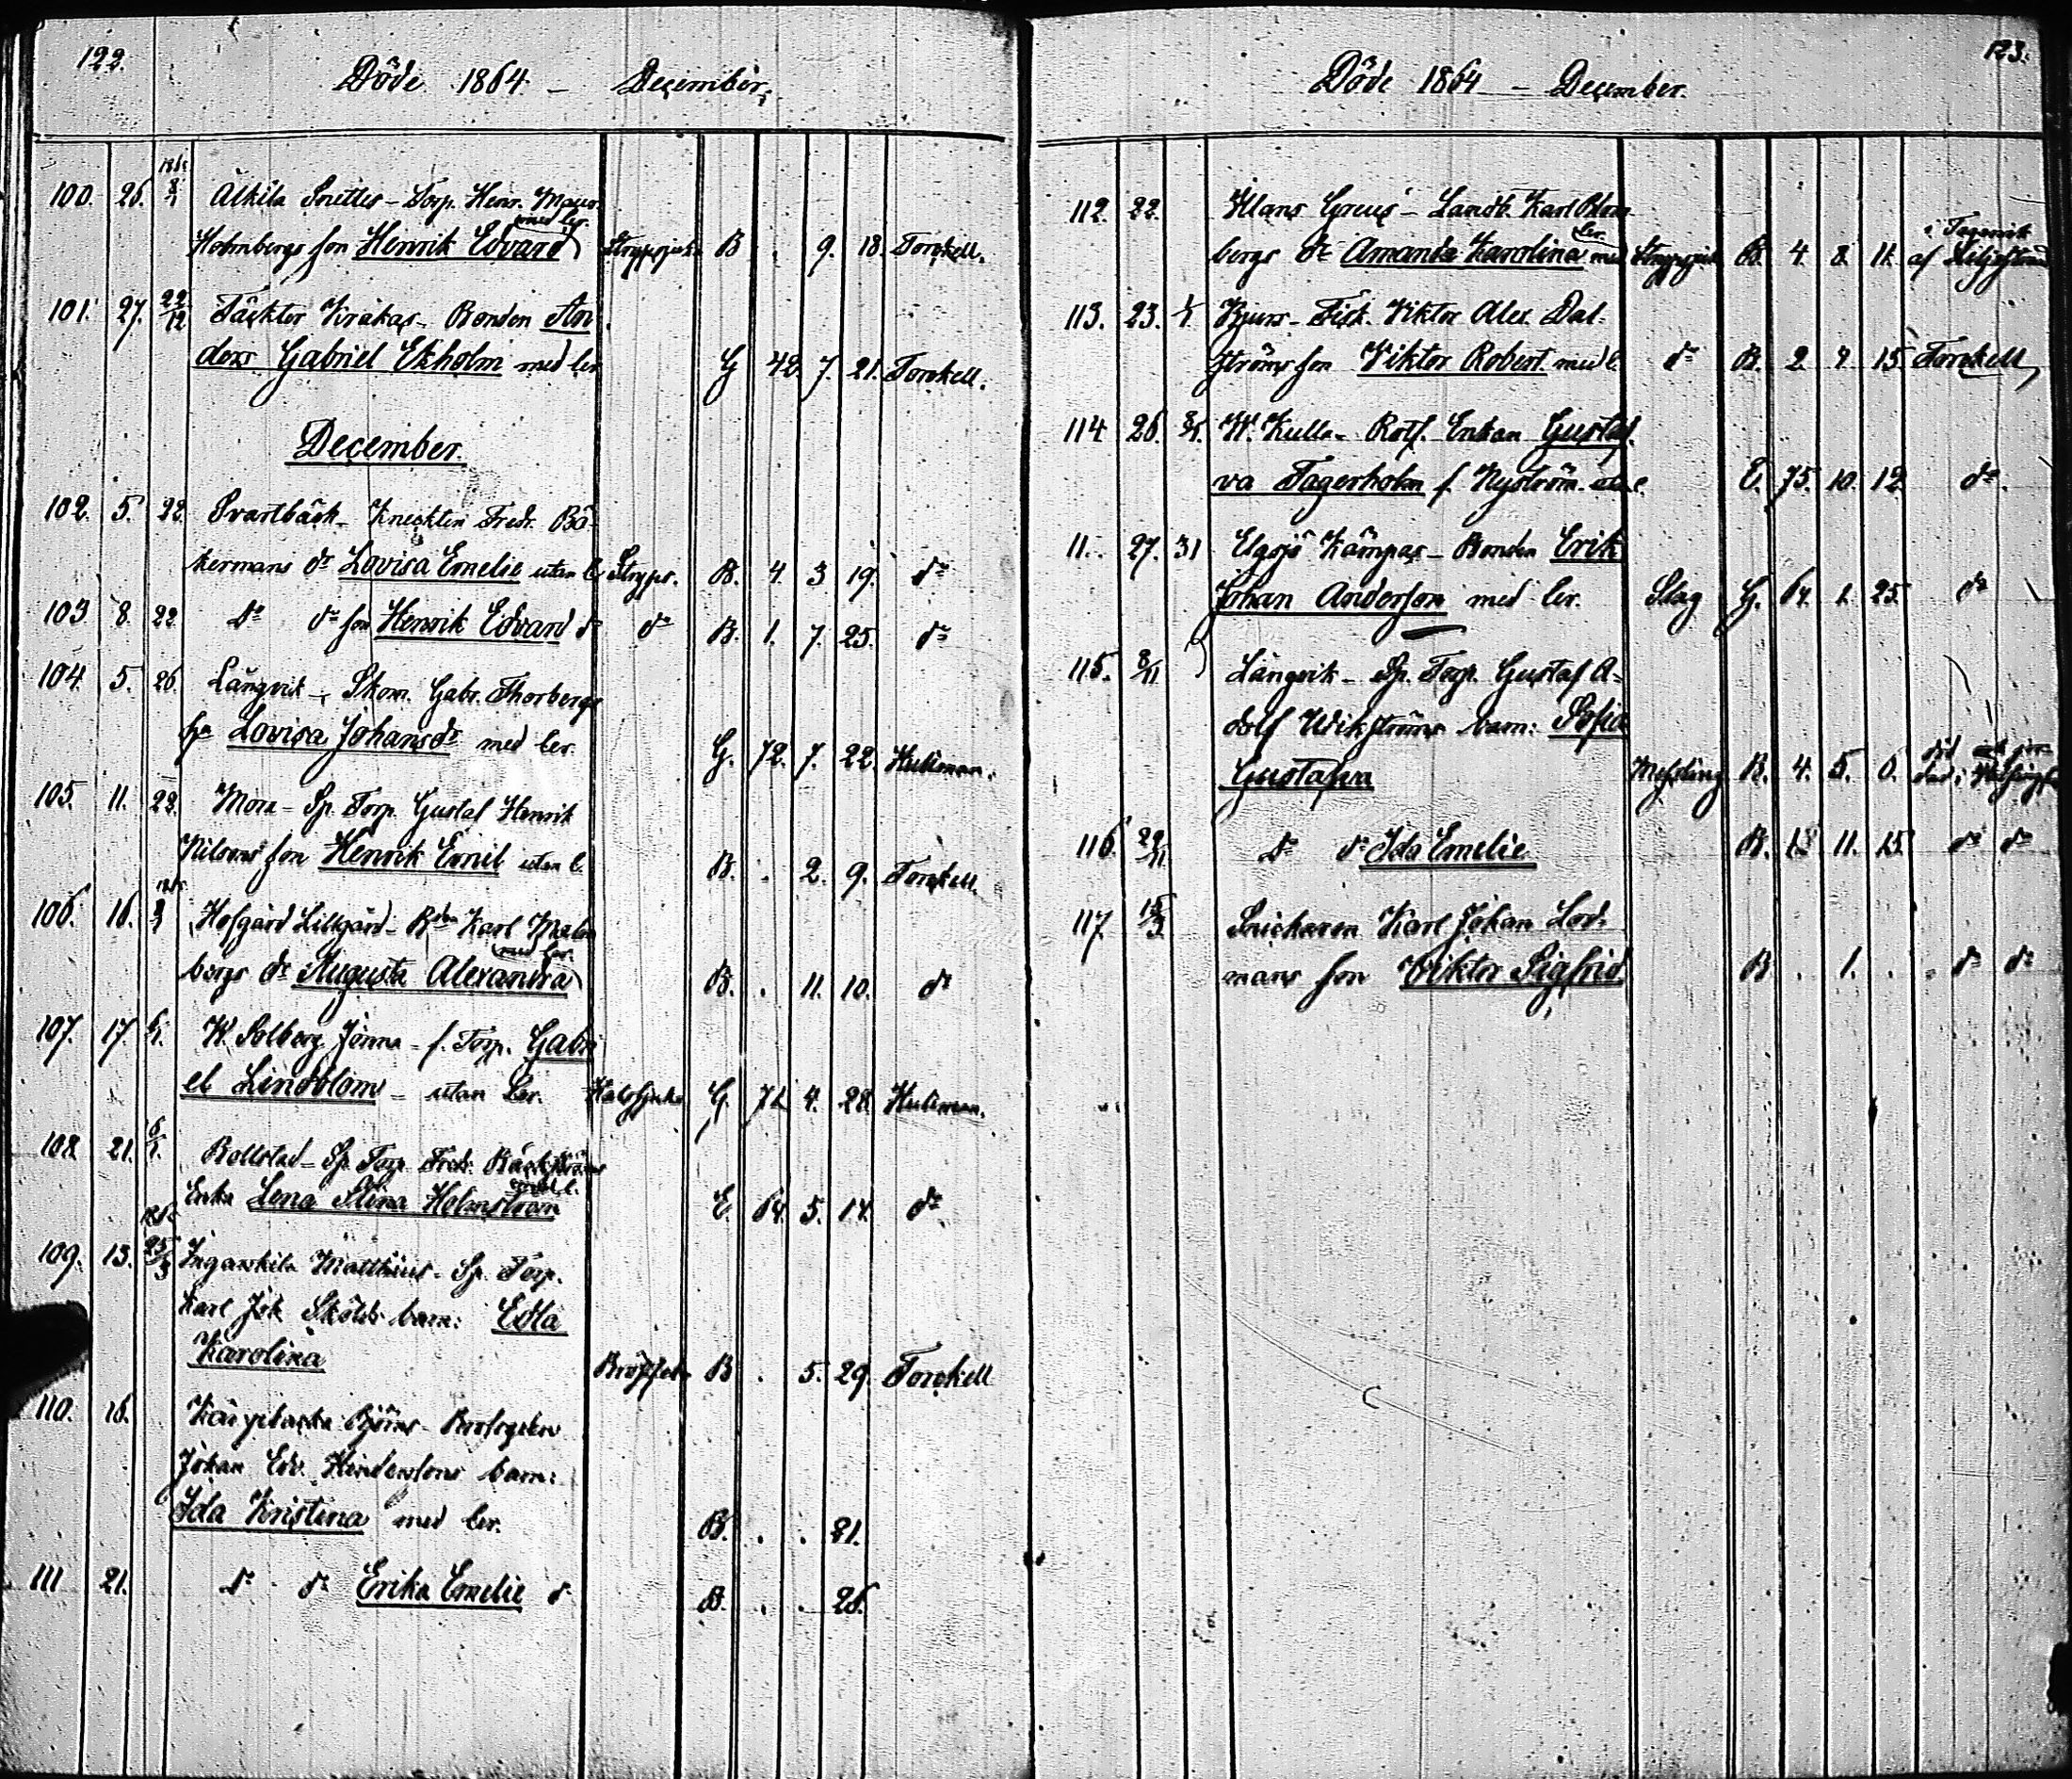 122.
Döde 1864 – December.
1865
100. 26. 8/1 Alkila Snettes – Torp. Henr. Maur.
med ber.
Holmbergs son Henrik Edvard Strypsjuk B . 9. 18. Torckell.
101. 27. 22/12 Täckter Kråkas – Bonden An
ders Gabriel Ekholm med ber G 42. 7. 21. Torckell.
December.
102. 5. 22. Svartbäck – Knechten Fredr. Bä-
kermans dr Lovisa Emelie utan b. Stryps. B. 4. 3 19. do
103 8. 22 Do do son Henrik Edvard do do B. 1. 7. 25. do
104. 5. 26. Långvik – Skom. Gabr. Thorbergs
hu Lovisa Johansdr med ber. G. 72. 7. 22. Hultman.
105. 11. 22. Mora – Sp. Torp. Gustaf Henrik
Nilssons son Henrik Emil utan b. B. . 2. 9. Torckell.
106. 16. Hofgård Lillgård – Bdn Karl Malm
med ber.
bergs dr Augusta Alexandra B. . 11. 10. do
107. 17. W. Solberg Jönna – f. Torp. Gabri
el Lindblom – utan ber. Halssjuka G. 71 4. 28. Hultman.
108 21. 6/1. Bollstad – Sp. Torp. Fredr. Bäckströms
med b.
Enka Lena Stina Holmström E. 64. 5. 14. do
109. 13. 25/3 Ingarskila Matthius – Sp. Torp.
Karl Joh Skölds barn: Edla
Karolina B . 5. 29. Torckell
110. 16. Björns
Johan Edv. barn:
Ida Kristina med ber. B. . . 21.
111 21. Do do Erika Emelie do B. . . 26.
123.
Döde 1864 – December.
112. 22. Landb. Karl Blom
ber.
bergs dr Amanda Karolina med Strypsjuk B. 4. 8. 11. af Liljestrand
113. 23. Bjurs – Fisk. Viktor Alex. Dal-
ströms son Viktor Robert med b. do B. 2. 15. Torckell
114 26. W. Kulla – Rotf. Enkan Gustaf-
va Fagerholm f. Nyström E. 75. 10. 12 do.
11.. 27. 31 Elgsjö Kämpas – Bonden Erik
Johan Andersson med ber. Slag G. 64. 1. 25. do
115. 8/11 Långvik – Sp. Torp. Gustaf A-
dolf Wikströms barn: Sofia
Gustafva Messling B. 4. 5. 6.
116. 22/11 Do do Ida Emelie B. 11. 15. do do
117. 15/3 Snickaren Karl Johan Lod-
mans son Viktor Sigfrid. B . 1. . . do do